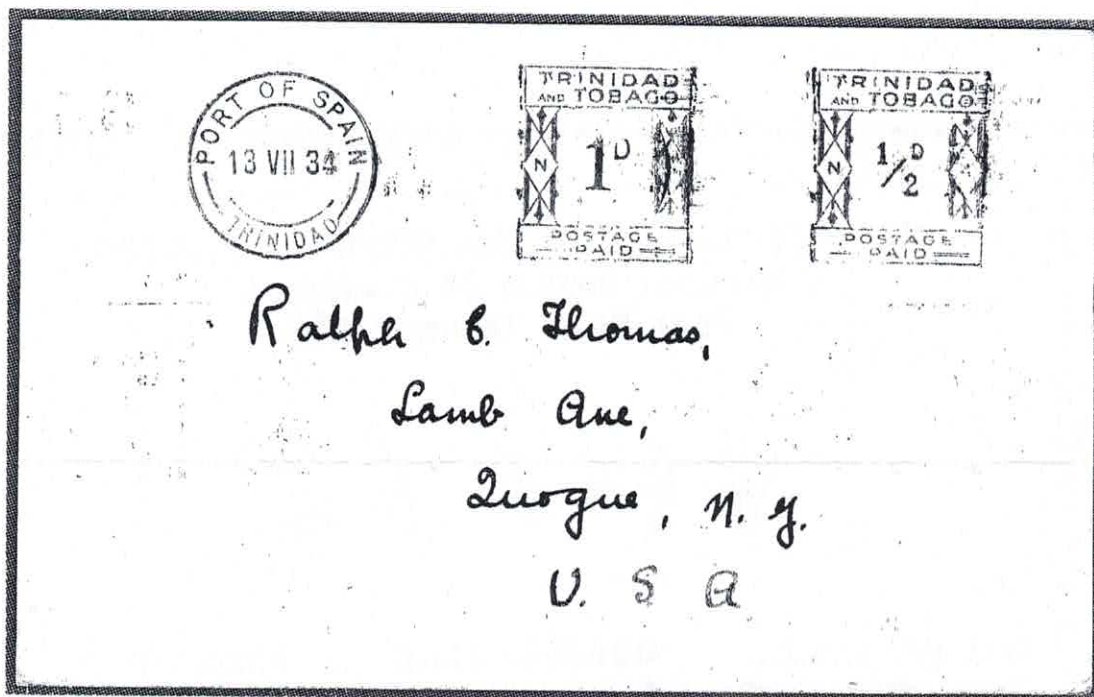 PORT OF SPAIN
13 VII 34
TRINIDAD
TRINIDAD
AND TOBAGO
N
1D
POSTAGE
PAID
TRINIDAD
AND TOBAGO
N
N
1/2 D
POSTAGE
PAID
Ralph C. Thomas,
Lamb Ave,
Quogue, N. Y.
U. S A